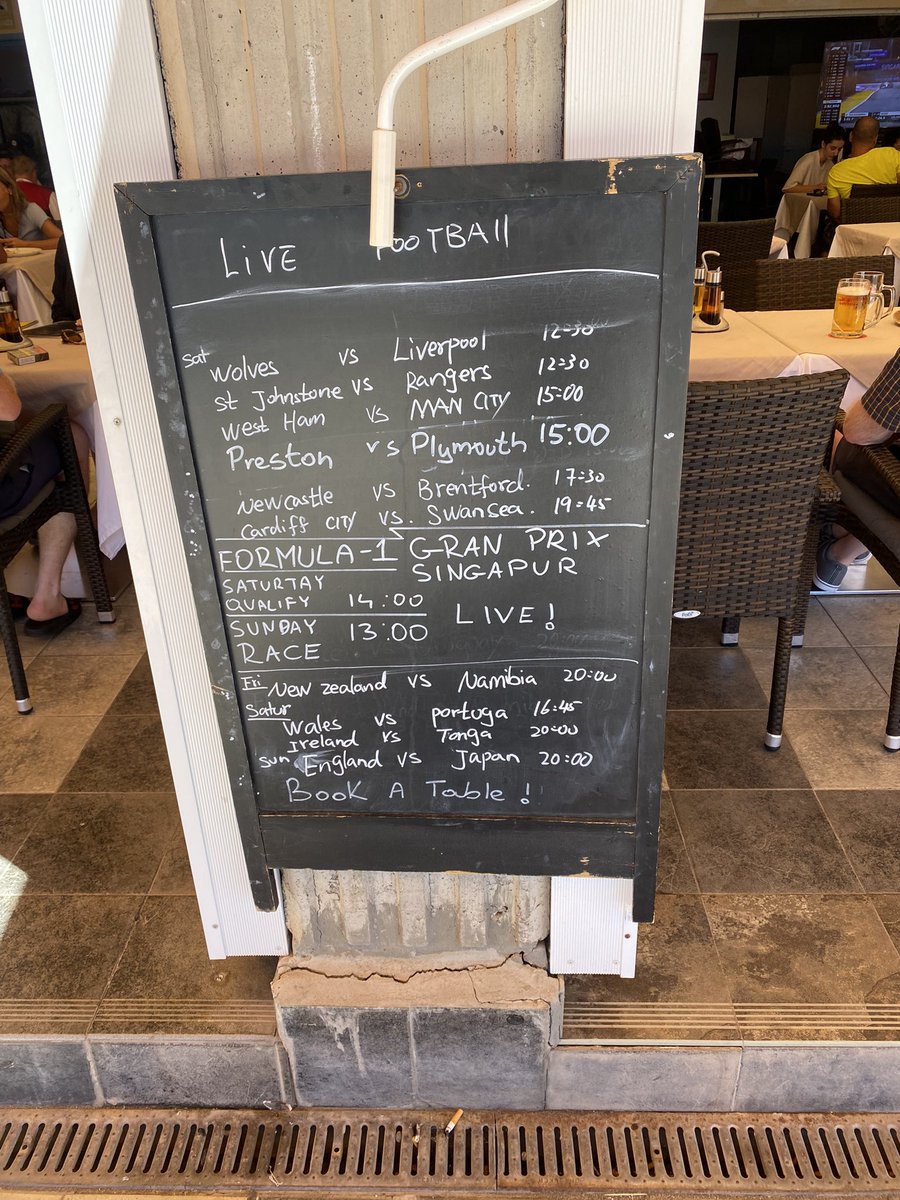 LiVE FOOTBAll
Sat Wolves vs Liverpool 12:30
St Johnstone vs Rangers 12:30
West Ham vs MAN CITY 15:00
Preston vs Plymouth 15:00
Newcastle vs Brentford. 17:30
Cardiff CITY vs. Swansea. 19:45
FORMULA-1 GRAN PRIX
SINGAPUR
SATURTAY
QUALIFY 14:00
LIVE!
SUNDAY 13:00
RACE
Fri New zealand vs Namibia 20:00
Satur
Wales vs portuga 16:45
Ireland vs Tonga 20:00
Sun England vs Japan 20:00
Book A Table!